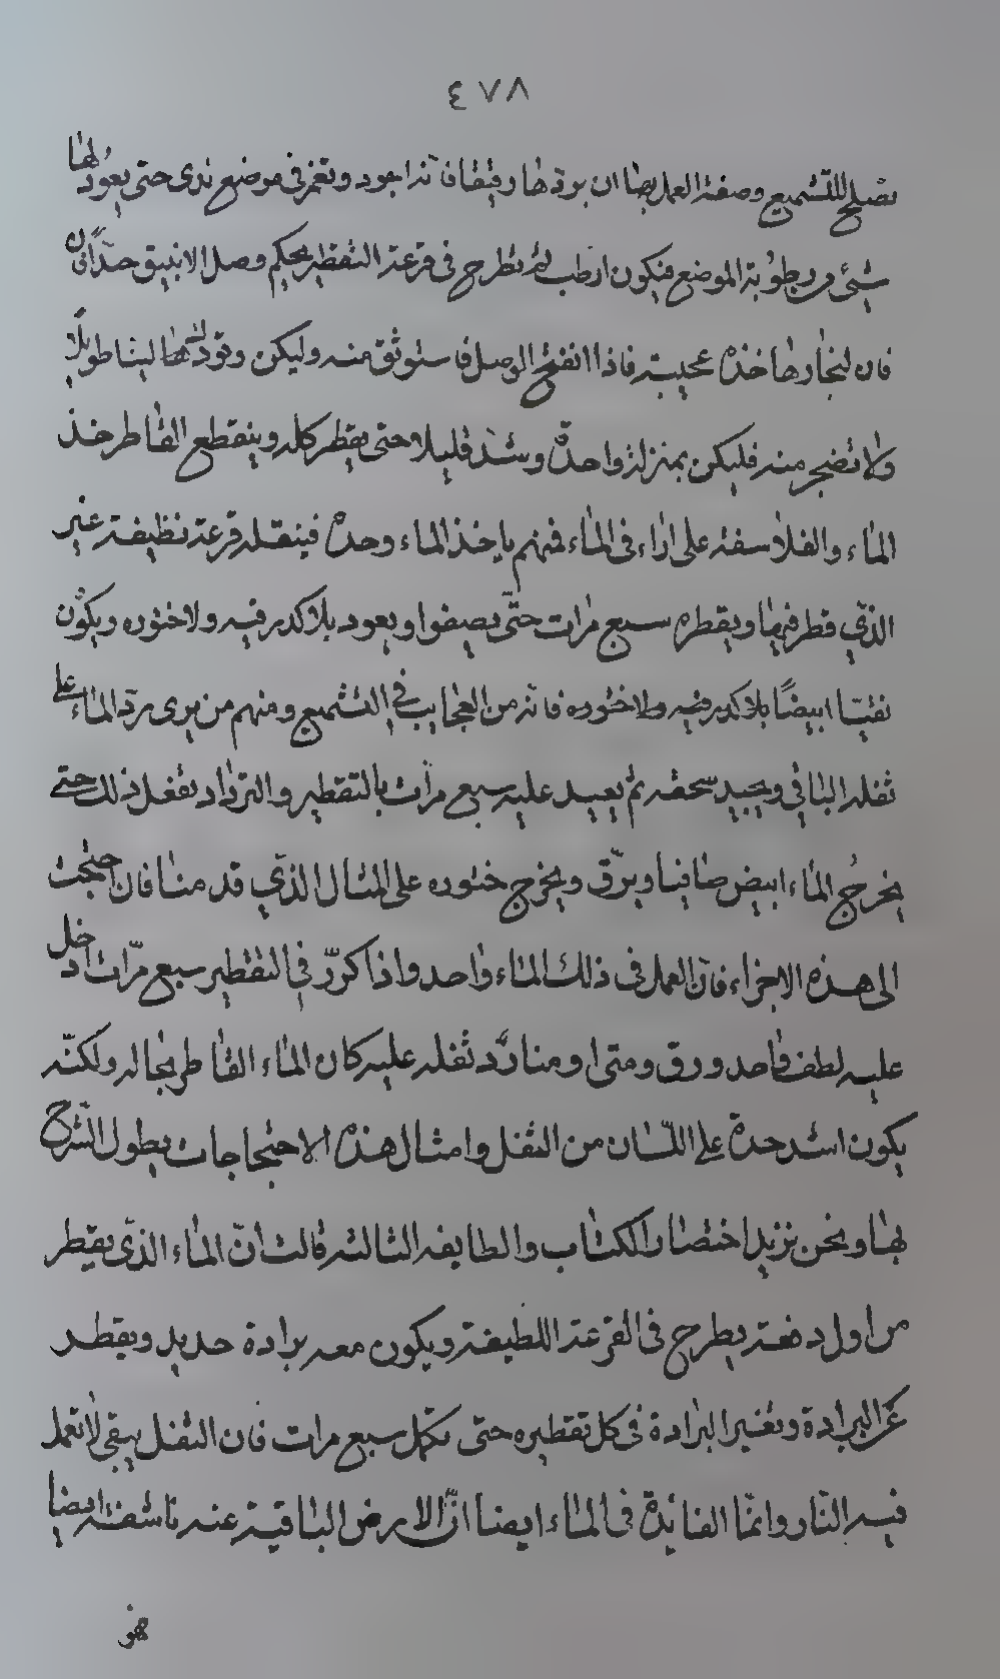 ٤٧٨
تصلح للتشميع وصفة العمل بها ان بردها رقيقا فانه اجود وتغمر فى موضع ندى حتى يعود لها
شيئ من رطوبة الموضع فيكون ارطب ثم تطرح فى قرعة التقطير يحكم وصل الانبيق جدّاً
فان لبخارها خذه عجيبة فاذا انفتح الوصل فاستوثق منه وليكن وقودها لينا طويلاً
ولا تضجر منه فليكن بمنزلة واحدة وشدّ قليلا حتى يقطر كله وينقطع القاطر خذ
الماء والفلاسفة على اراء فى الماء فمنهم ياخذ الماء وحده فينقله قرعة نظيفة غير
الذّي قطر فيها ويقطره سبع مرات حتّى يصيفوا ويعود بلا كدر فيه ولا خثوره ويكون
نقيّا ابيضًا بلا كدر فيه ولا خثوره فانه من العجايب فى التشميع ومنهم من يرى ردّ الماء على
ثفله الباقي ويجيد سحقه ثم يعيد عليه سبع مرّات بالتقطير والترداد تفعل ذلك حتى
يخرجُ الماء ابيض صافيا ويرّق ويخرج خثوره على المثال الذّي قدمنا فان احتجت
الى هذه الاجزاء فانّ العمل فى ذلك الماء واحد واذا كرّر فى التقطير سبع مرّات ادخل
عليه لطف واحد ورق ومتى ا ومنا ردّ ثفله عليه كان الماء القاطر بحاله ولكنّه
يكون اشد حدة على اللّسان من الثفل وامثال هذه الاحتجاجات يطول الشّرح
بها ونحن نزيد اختصار الكتاب والطايفه الثالثه قالت انّ الماء الذّى يقطر
من اول دفعة يطرح فى القرعة اللطيفة ويكون معه برادة حديد ويقطر
عن البرادة وتغير البرادة فى كل تقطيره حتى تكمل سبع مرات فان الثفل يبقى لا تعمل
فيه النّار وانمّا الفائدة فى الماء ايضا انّ الارض الباقية عنه ناشفة ايضا
فهو